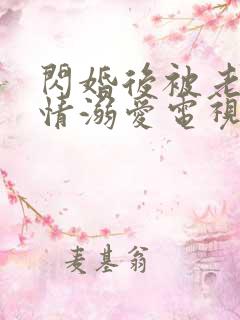 閃婚後被老
情溺愛電視
麦基翁